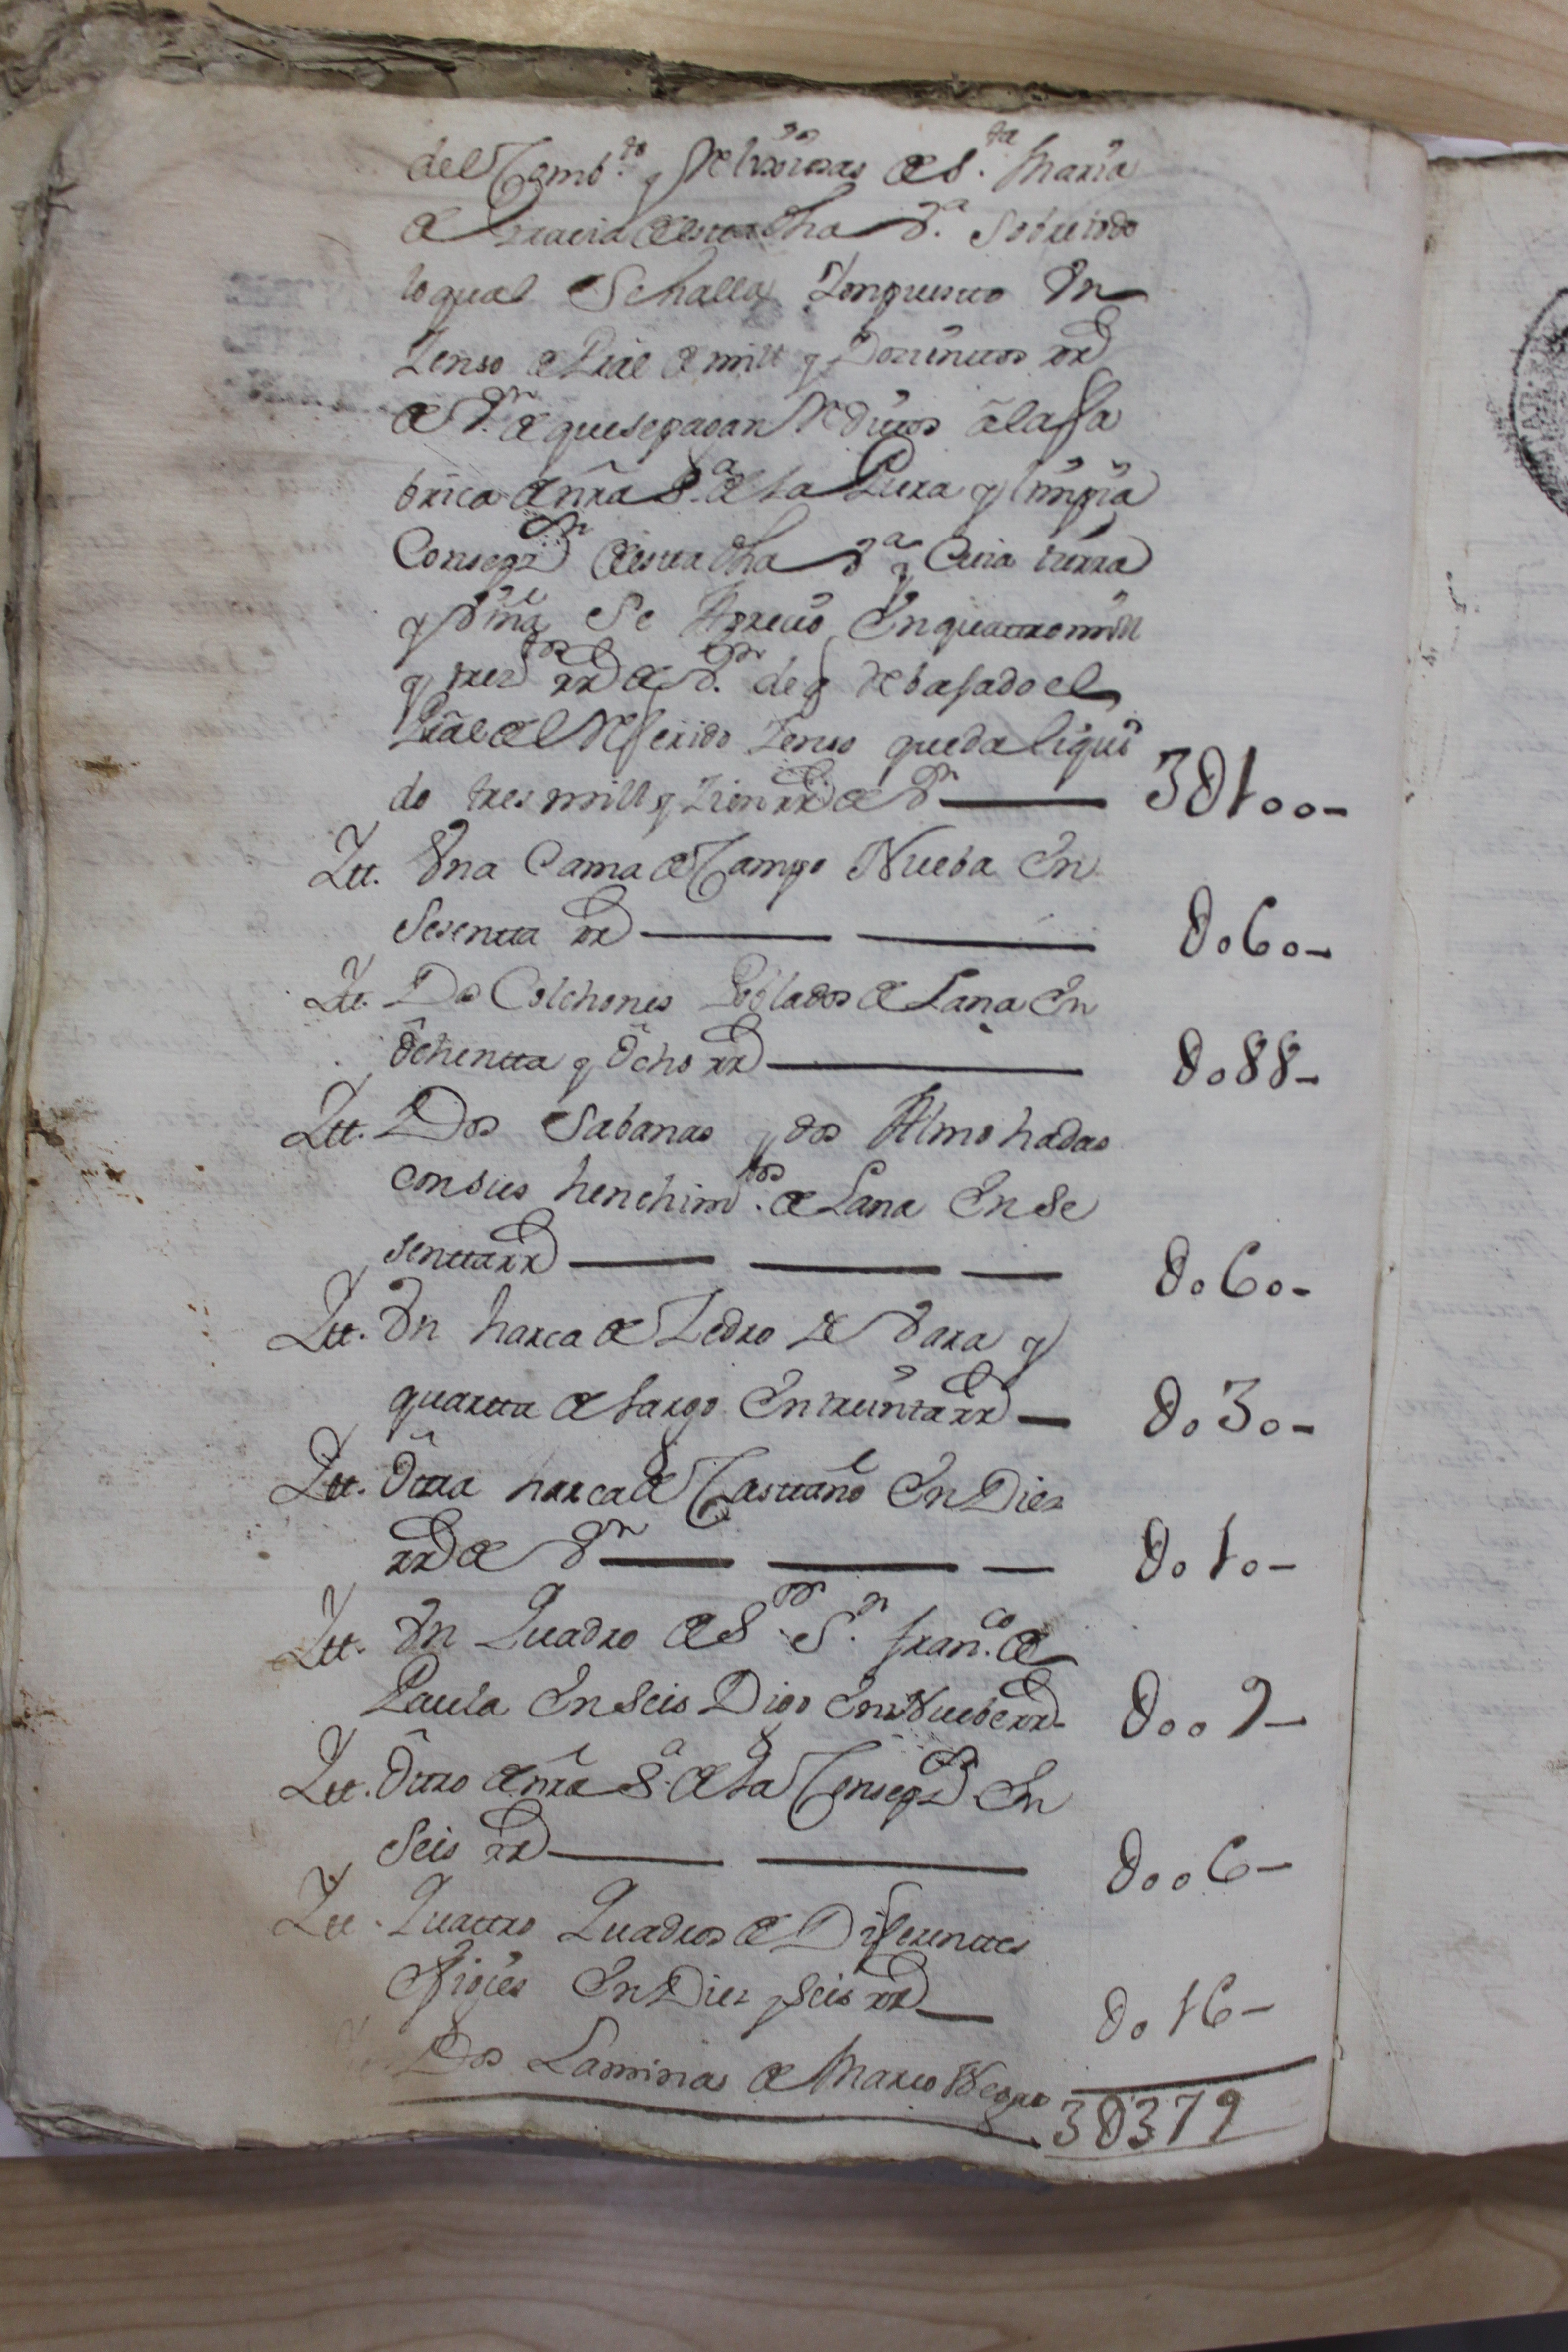 del Comb.to y Relixiosas de S.ta Maria
de Gracia desta dha V.a Sobre todo
lo qual Se halla Ympuesto Un
Zenso de Pral de mill y Docientos rrs
de Vn de que se pagan Reditos â la fa
brica de nra S.a de la Pura y limpia
Consepzon desta dha V.a y Cuia tierra
y Viña Se Aprecio En quattro mill
y trezos rrs de Von de q Rebajado el
Pral del Referido Zenso queda liqui
do tres mill y Zien rrs de Vn 3U100-
Ytt. Una Cama de Campo Nueba En
Sesentta rrs U060-
Ytt. Dos Colchones Poblados de Lana En
Ôchentta y Ôcho rrs U088-
Ytt. Dos Sabanas y dos Almohadas
con sus henchimtos de Lana En Se
senttarrs U060-
Ytt. Un harca de Zedro de Vara y
quartta de largo En treinta rrs U030-
Ytt. Ôttra harca de Casttaño En Diez
rrs de Vn U010-
Ytt. Un Quadro de S.or S.n fran.co de
Paula En Seis Digo En Nuebe rrs U009-
Ytt. Ôttro de nra S.a de la Consepzon En
Seis rrs U006-
Ytt. Quattro Quadros de Diferenttes
Efigies En Diez y Seis rrs U016-
Dos Laminas de Marco Negro
3U379